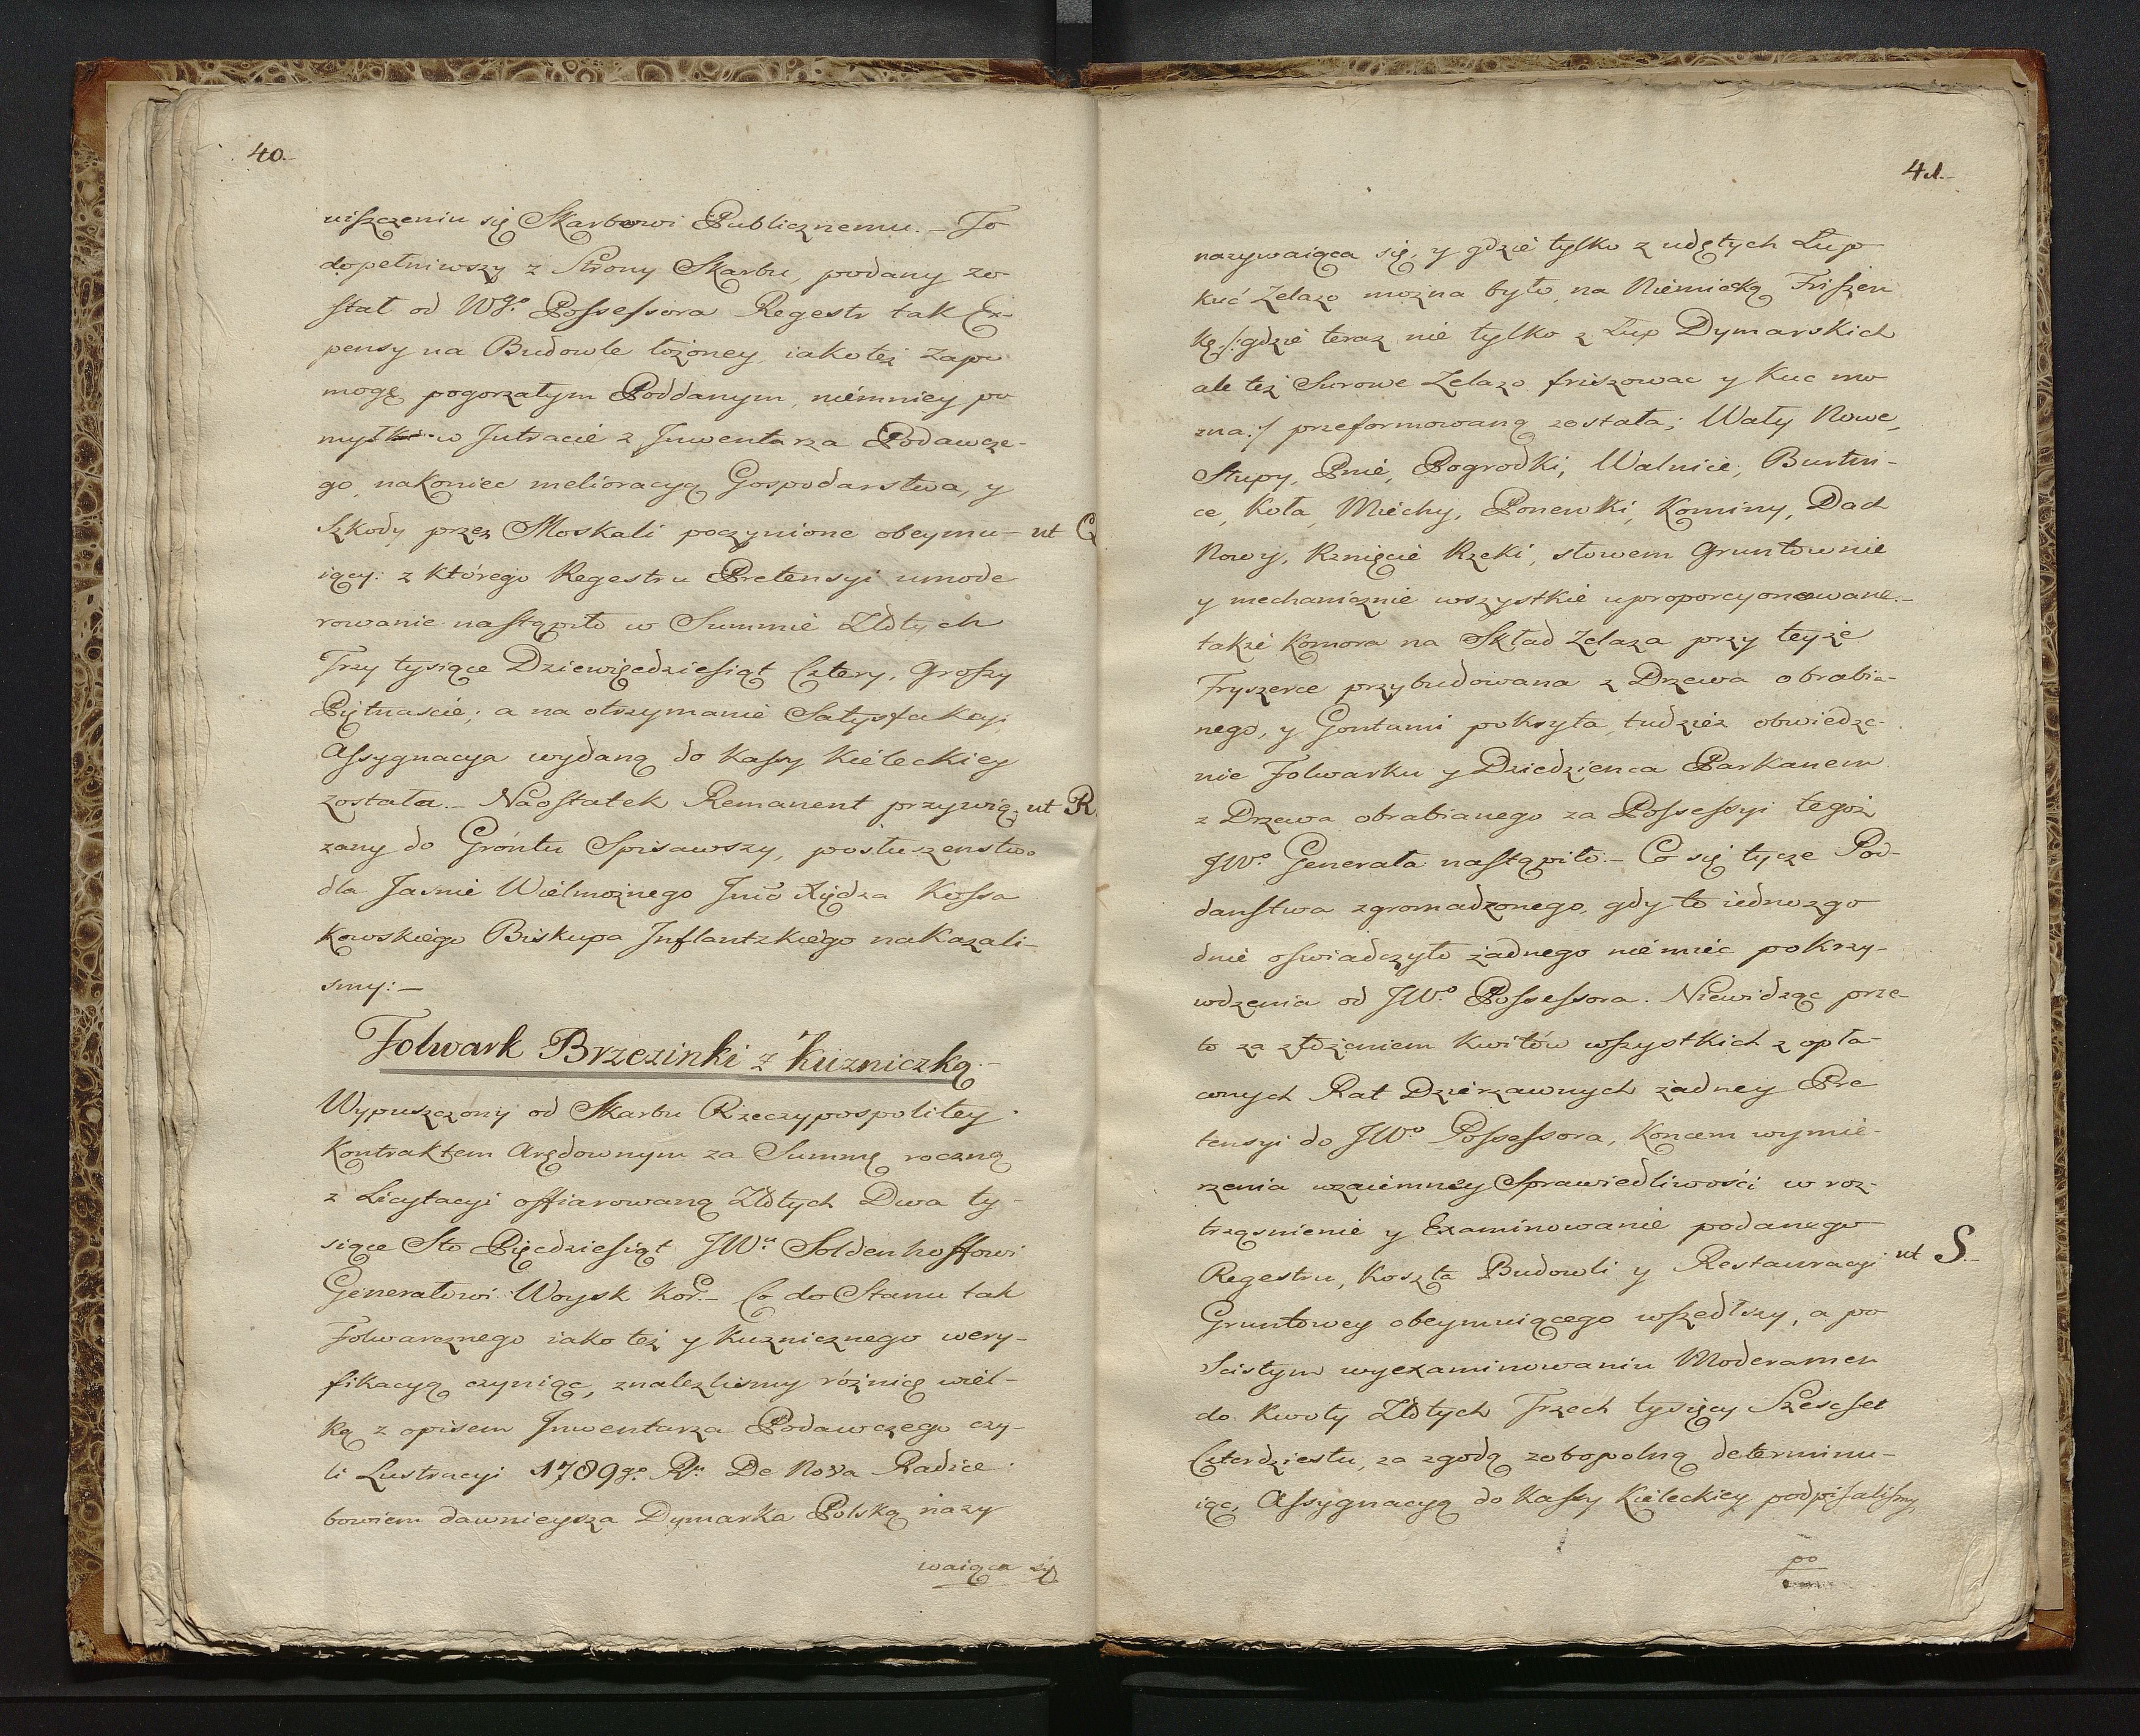 40.
uiszczeniu się Skarbowi Publicznemu. – To
dopełniwszy z Strony Skarbu, podany zo
stał od Wgo. Possessora Regestr tak Ex-
pensy na Budowle łożoney, iakoteż Zapo
mogę pogorzałym Poddanym, niemniey po
myłki w Intracie z Inwentarza Podawcze-
go, nakoniec melioracyą Gospodarstwa, y
Szkody przez Moskali poczynione obeymu- ut Q
iący: z którego Regestru Pretensyi umode
rowanie nastąpiło w Summie Złotych
Trzy tysiące Dziewięcdziesiąt Cztery, Groszy
Piętnaście; a na otrzymanie Satysfakcyi
Assygnacya wydaną do Kassy Kieleckiey
została. – Naostatek Remanent przywią- ut R.
zany do Gróntu Spisawszy, posłuszenstwo
dla Jasnie Wielmożnego Jmć Xiędza Kossa
kowskiego Biskupa Inflantzkiego nakazali-
smy: –
Folwark Brzezinki z Kuzniczką. –
Wypuszczony od Skarbu Rzeczypospolitey
Kontraktem Arędownym za Summę roczną
z Licytacyi offiarowaną Złotych Dwa ty-
siące Sto Pięcdziesiąt JWu. Soldenhoffowi
Generałowi Woysk Kor. – Co do Stanu tak
Folwarcznego iako też y Kuznicznego wery-
fikacyą czyniąc, znalezlismy różnicę wiel-
ką z opisem Inwentarza Podawczego czy-
li Lustracyi 1789go. Ru. De Nova Radice
bowiem dawnieysza Dymarka Polską nazy
waiąca się
41.
nazywaiąca się, y gdzie tylko z udętych Łup
kuć Zelazo można było, na Niemiecką Friszer
kę /: gdzie teraz nie tylko z Łup Dymarskich
ale też Surowe Zelazo friszowac y Kuc mo
zna :/ przeformowaną została; Wały Nowe,
Słupy, Pnie, Pogrodki, Walnice, Burtni-
ce, Koła, Miechy, Ponewki, Kominy, Dach
Nowy, Rznięcie Rzeki, słowem Gruntownie
y mechanicznie wszystkie uproporcyonowane. –
także Komora na Skład Zelaza przy teyże
Fryszerce przybudowana z Drzewa obrabia-
nego, y Gontami pokryta, tudzież obwiedze-
nie Folwarku y Dziedzienca Parkanem
z Drzewa obrabianego za Possessyi tegoż
JWo Generała nastąpiło. – Co się tycze Pod-
danstwa zgromadzonego, gdy to iednozgo
dnie oswiadczyło żadnego niemieć pokrzy-
wdzenia od JWo. Possessora. Niewidząc prze
to za złożeniem Kwitów wszystkich z opła-
conych Rat Dzierzawnych żadney Pre
tensyi do JWo. Possessora, Koncem wymie-
rzenia wzaiemney Sprawiedliwości w roz-
trząsnienie y Examinowanie podanego
Regestru, Koszta Budowli y Restauracyi ut S. –
Gruntowey obeymuiącego wszedłszy, a po
Scisłym wyexaminowaniu Moderamen
do Kwoty Złotych Trzech tysięcy Szescset
Czterdziestu, za zgodą zobopolną determinu-
iąc, Assygnacyą do Kassy Kieleckiey podpisalismy,
po